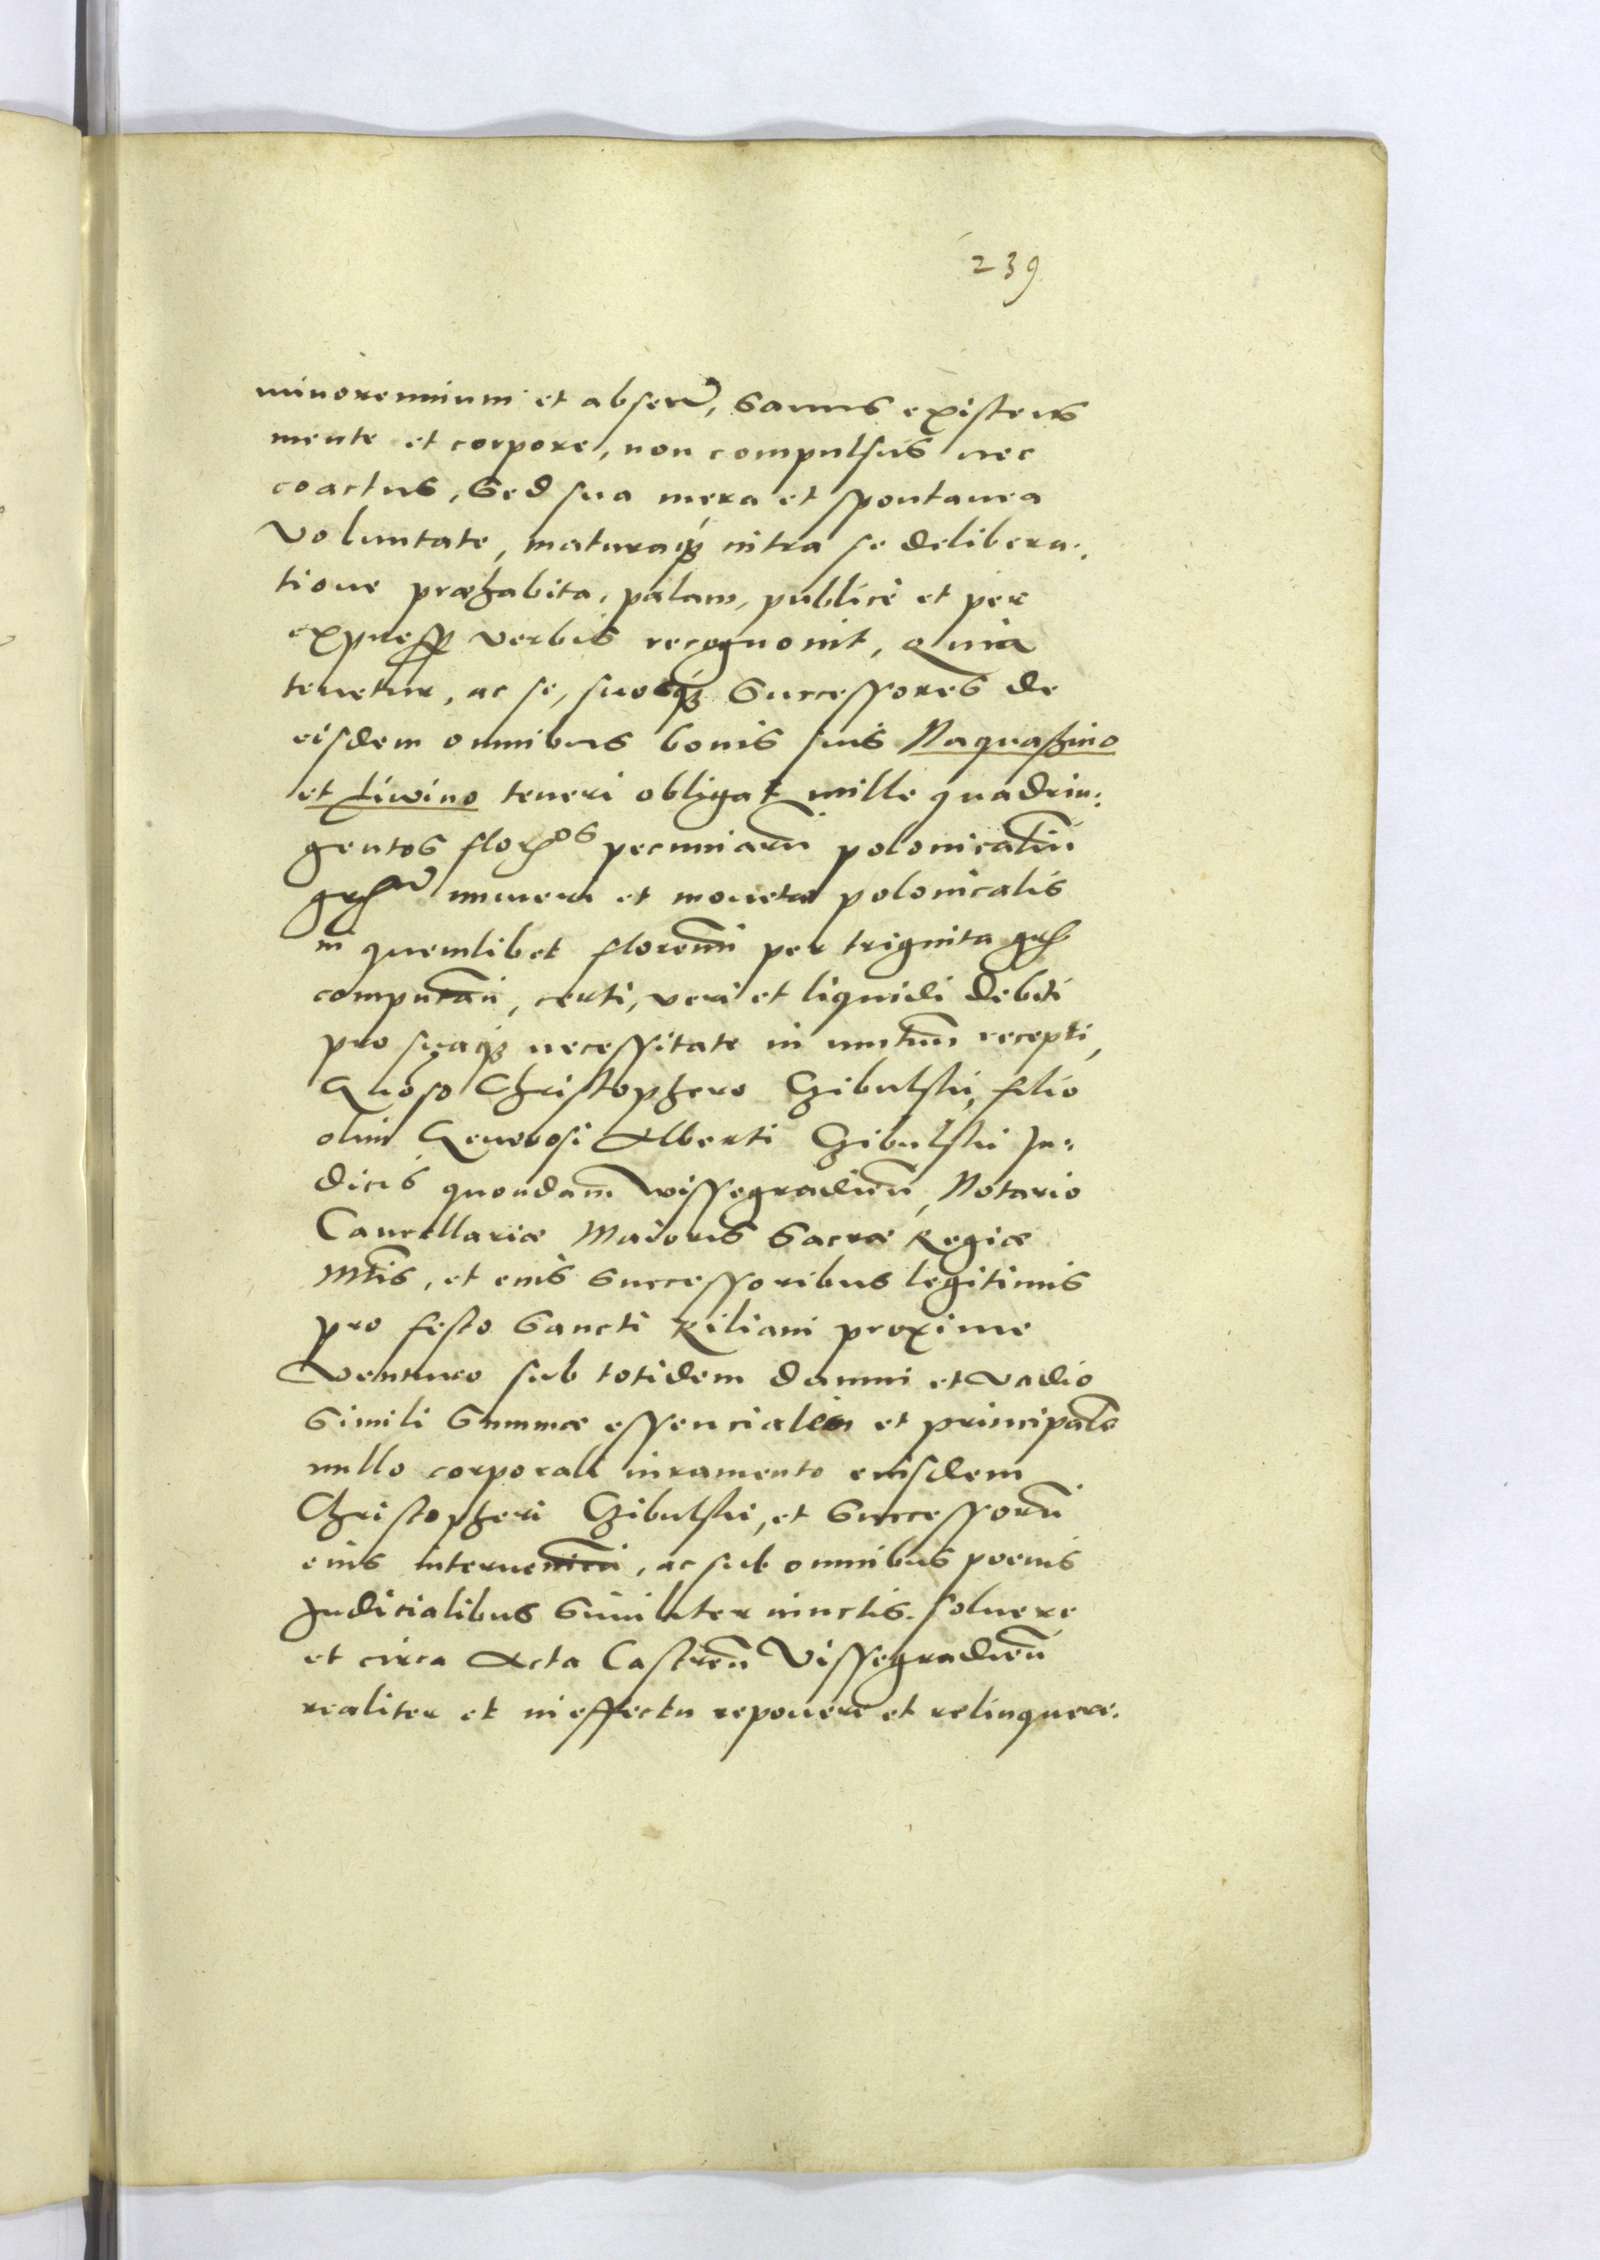 239
minorennium et absen, sanus existens
mente et corpore, non compulsus nec
coactus, sed sua mera et spontanea
voluntate, maturaq₃ intra se delibera:
tione præhabita, palam, publicè et per
express verbis recognouit, Quia
tenetur, ac se, suosq₃ successores de
eisdem omnibus bonis suis Naquashino
et Liwino teneri obligat mille quadrin:
gentos flor^os pecuniarū polonicaliū
numeri et monetæ polonicalis
in quemlibet florenū per triginta gr
computan, certi, veri et liquidi debiti
pro suaq₃ necessitate in mutuū recepti,
Gnoso Christophero Czibulski, filio
olim Generosi Alberti Czibulski Ju:
dicis quondam Wissegradien̄, Notario
Cancellariæ Maioris Sacræ Regiæ
Mtis, et eius successoribus legitimis
pro festo Sancti Kiliani proxime
venturo sub totidem damni et vadio
simili summæ essenciali et principali
nullo corporali iuramento eiusdem
Christopheri Czibulski, et successorū
eius interueni, ac sub omnibus poenis
Judicialibus similiter iunctis. soluere
et circa Acta Castren̄ Vissegradien̄
realiter et in effectu reponere et relinquere.